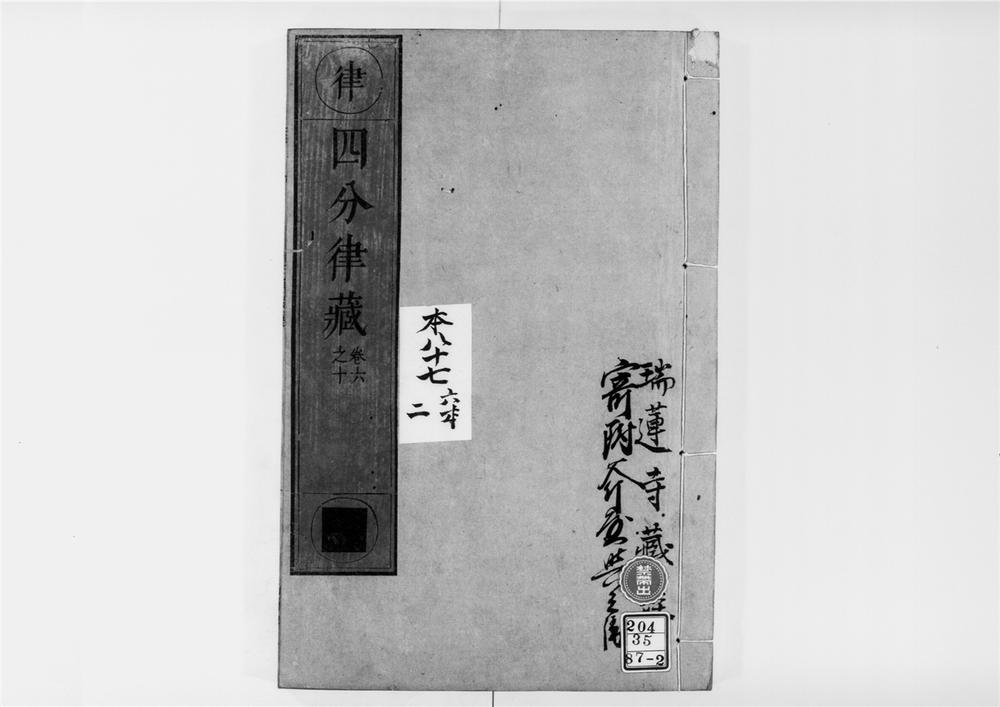 律
四分律藏
卷六
之十
本八十七
六本
二
瑞蓮寺藏
寄附
禁帶出
204
35
87-2